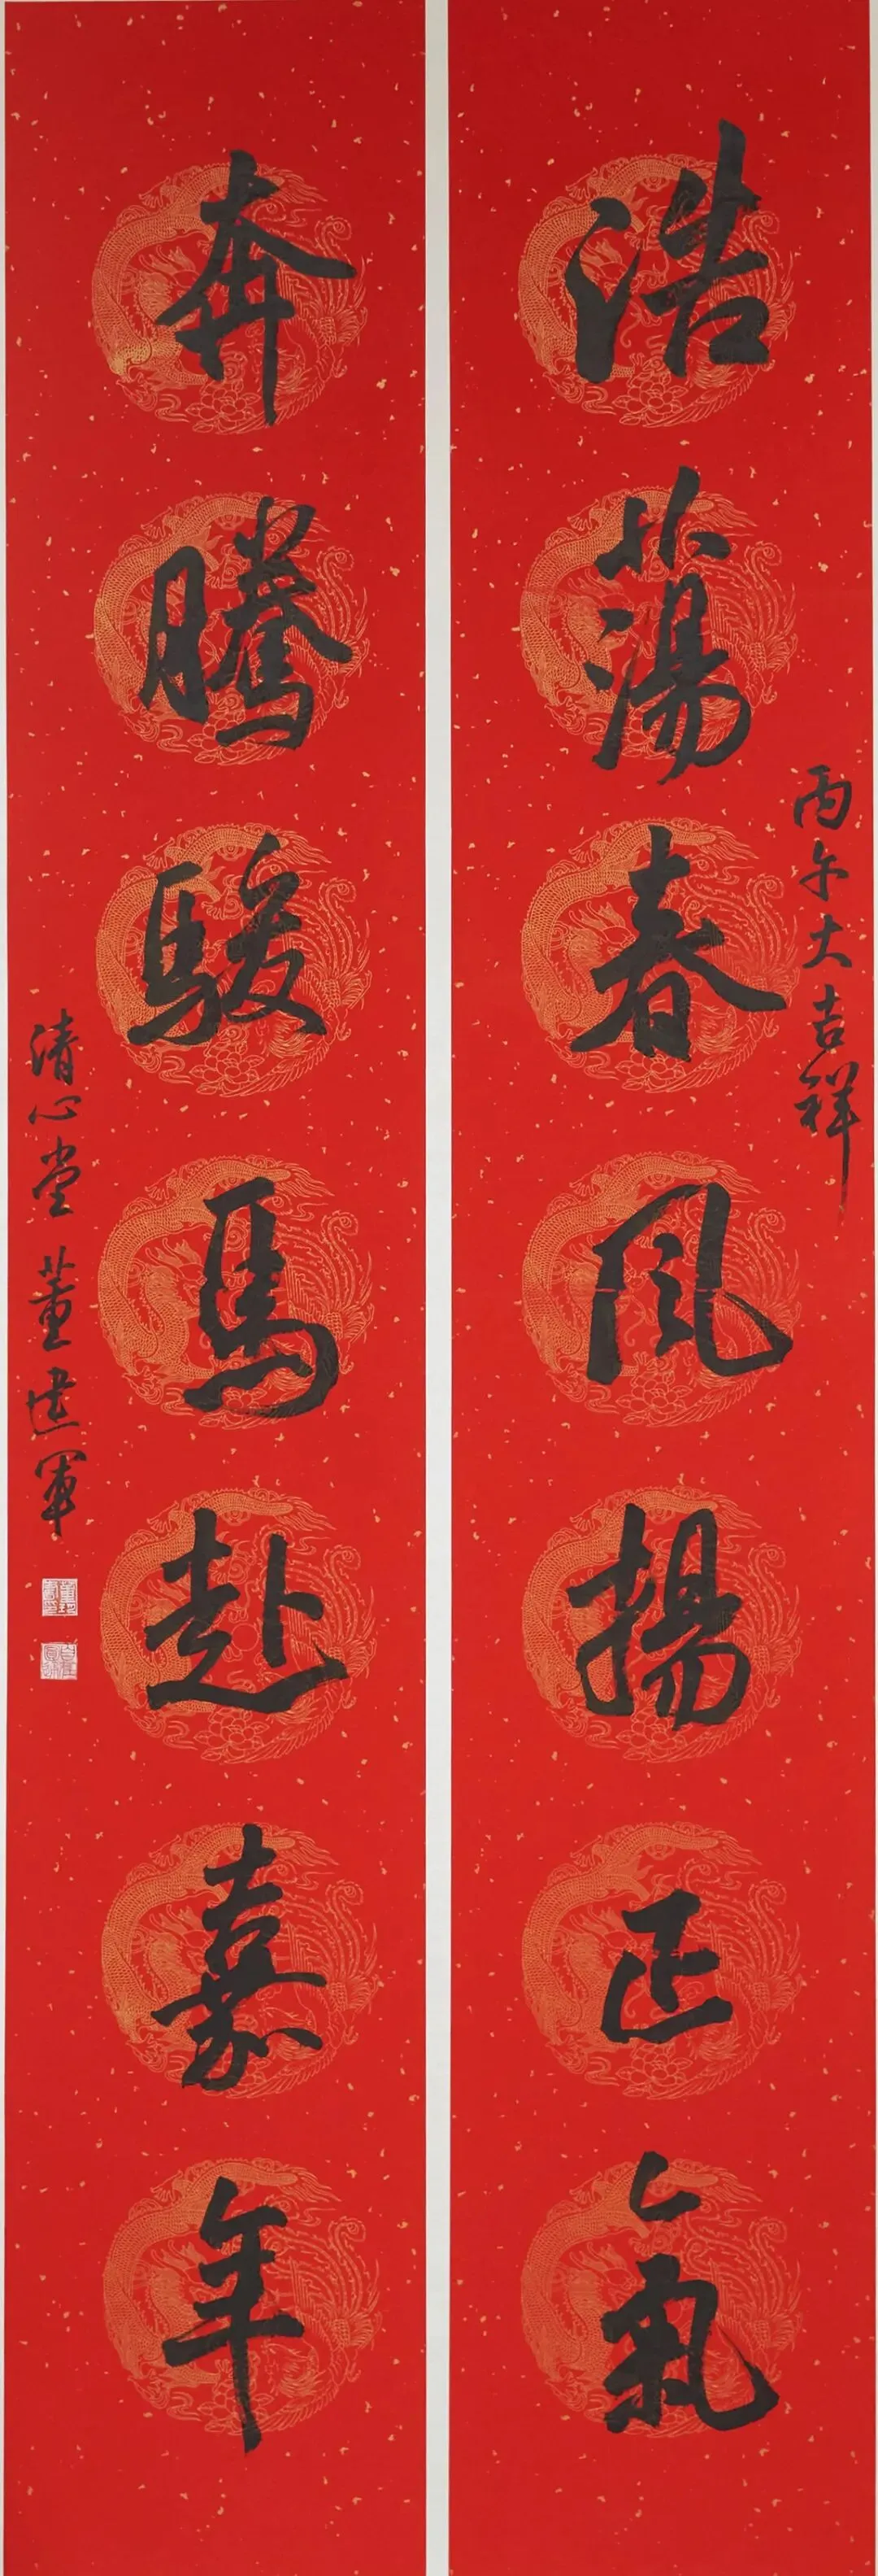 丙午大吉祥
浩蕩春风揚正氣
奔騰駿馬赴嘉年
清心堂 董建軍